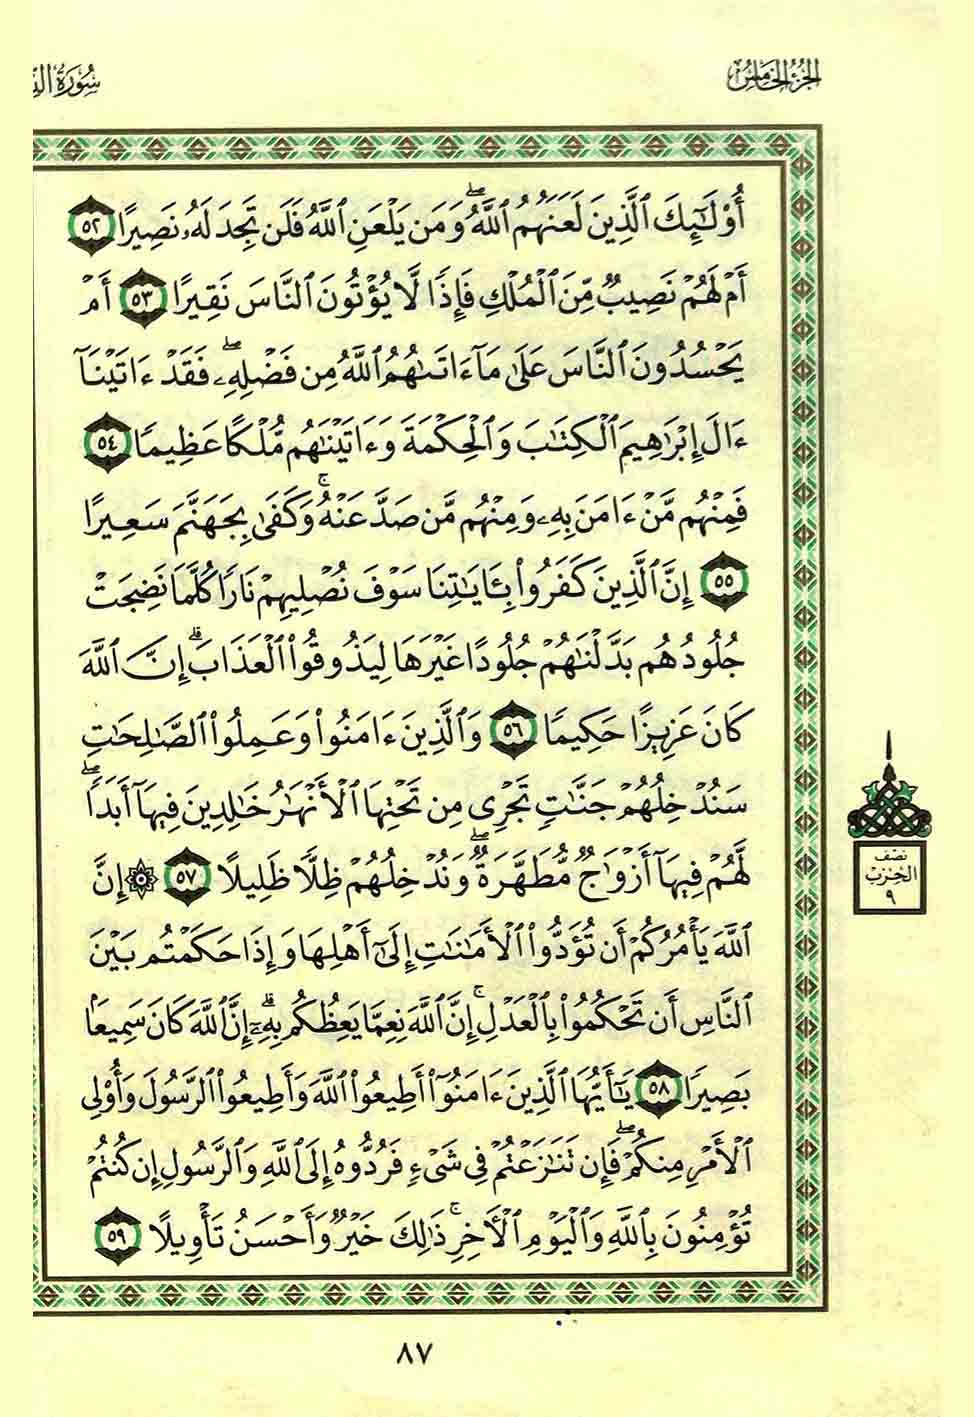 الجزء الخامس
سورة
أُوْلَـٰٓئِكَ ٱلَّذِينَ لَعَنَهُمُ ٱللَّهُۖ وَمَن يَلْعَنِ ٱللَّهُ فَلَن تَجِدَ لَهُۥ نَصِيرًا ٥٢
أَمْ لَهُمْ نَصِيبٌ مِّنَ ٱلْمُلْكِ فَإِذًا لَّا يُؤْتُونَ ٱلنَّاسَ نَقِيرًا ٥٣ أَمْ
يَحْسُدُونَ ٱلنَّاسَ عَلَىٰ مَآ ءَاتَىٰهُمُ ٱللَّهُ مِن فَضْلِهِۦۖ فَقَدْ ءَاتَيْنَآ
ءَالَ إِبْرَٰهِيمَ ٱلْكِتَـٰبَ وَٱلْحِكْمَةَ وَءَاتَيْنَـٰهُم مُّلْكًا عَظِيمًا ٥٤
فَمِنْهُم مَّنْ ءَامَنَ بِهِۦ وَمِنْهُم مَّن صَدَّ عَنْهُۚ وَكَفَىٰ بِجَهَنَّمَ سَعِيرًا
٥٥ إِنَّ ٱلَّذِينَ كَفَرُواْ بِـَٔايَـٰتِنَا سَوْفَ نُصْلِيهِمْ نَارًا كُلَّمَا نَضِجَتْ
جُلُودُهُم بَدَّلْنَـٰهُمْ جُلُودًا غَيْرَهَا لِيَذُوقُواْ ٱلْعَذَابَۗ إِنَّ ٱللَّهَ
كَانَ عَزِيزًا حَكِيمًا ٥٦ وَٱلَّذِينَ ءَامَنُواْ وَعَمِلُواْ ٱلصَّـٰلِحَـٰتِ
سَنُدْخِلُهُمْ جَنَّـٰتٍ تَجْرِى مِن تَحْتِهَا ٱلْأَنْهَـٰرُ خَـٰلِدِينَ فِيهَآ أَبَدًاۖ
لَّهُمْ فِيهَآ أَزْوَٰجٌ مُّطَهَّرَةٌۖ وَنُدْخِلُهُمْ ظِلًّا ظَلِيلًا ٥٧ ۞ إِنَّ
ٱللَّهَ يَأْمُرُكُمْ أَن تُؤَدُّواْ ٱلْأَمَـٰنَـٰتِ إِلَىٰٓ أَهْلِهَا وَإِذَا حَكَمْتُم بَيْنَ
ٱلنَّاسِ أَن تَحْكُمُواْ بِٱلْعَدْلِۚ إِنَّ ٱللَّهَ نِعِمَّا يَعِظُكُم بِهِۦٓۗ إِنَّ ٱللَّهَ كَانَ سَمِيعَۢا
بَصِيرًا ٥٨ يَـٰٓأَيُّهَا ٱلَّذِينَ ءَامَنُوٓاْ أَطِيعُواْ ٱللَّهَ وَأَطِيعُواْ ٱلرَّسُولَ وَأُوْلِى
ٱلْأَمْرِ مِنكُمْۖ فَإِن تَنَـٰزَعْتُمْ فِى شَىْءٍ فَرُدُّوهُ إِلَى ٱللَّهِ وَٱلرَّسُولِ إِن كُنتُمْ
تُؤْمِنُونَ بِٱللَّهِ وَٱلْيَوْمِ ٱلْـَٔاخِرِۚ ذَٰلِكَ خَيْرٌ وَأَحْسَنُ تَأْوِيلًا ٥٩
نصف
الحزب
٩
٨٧